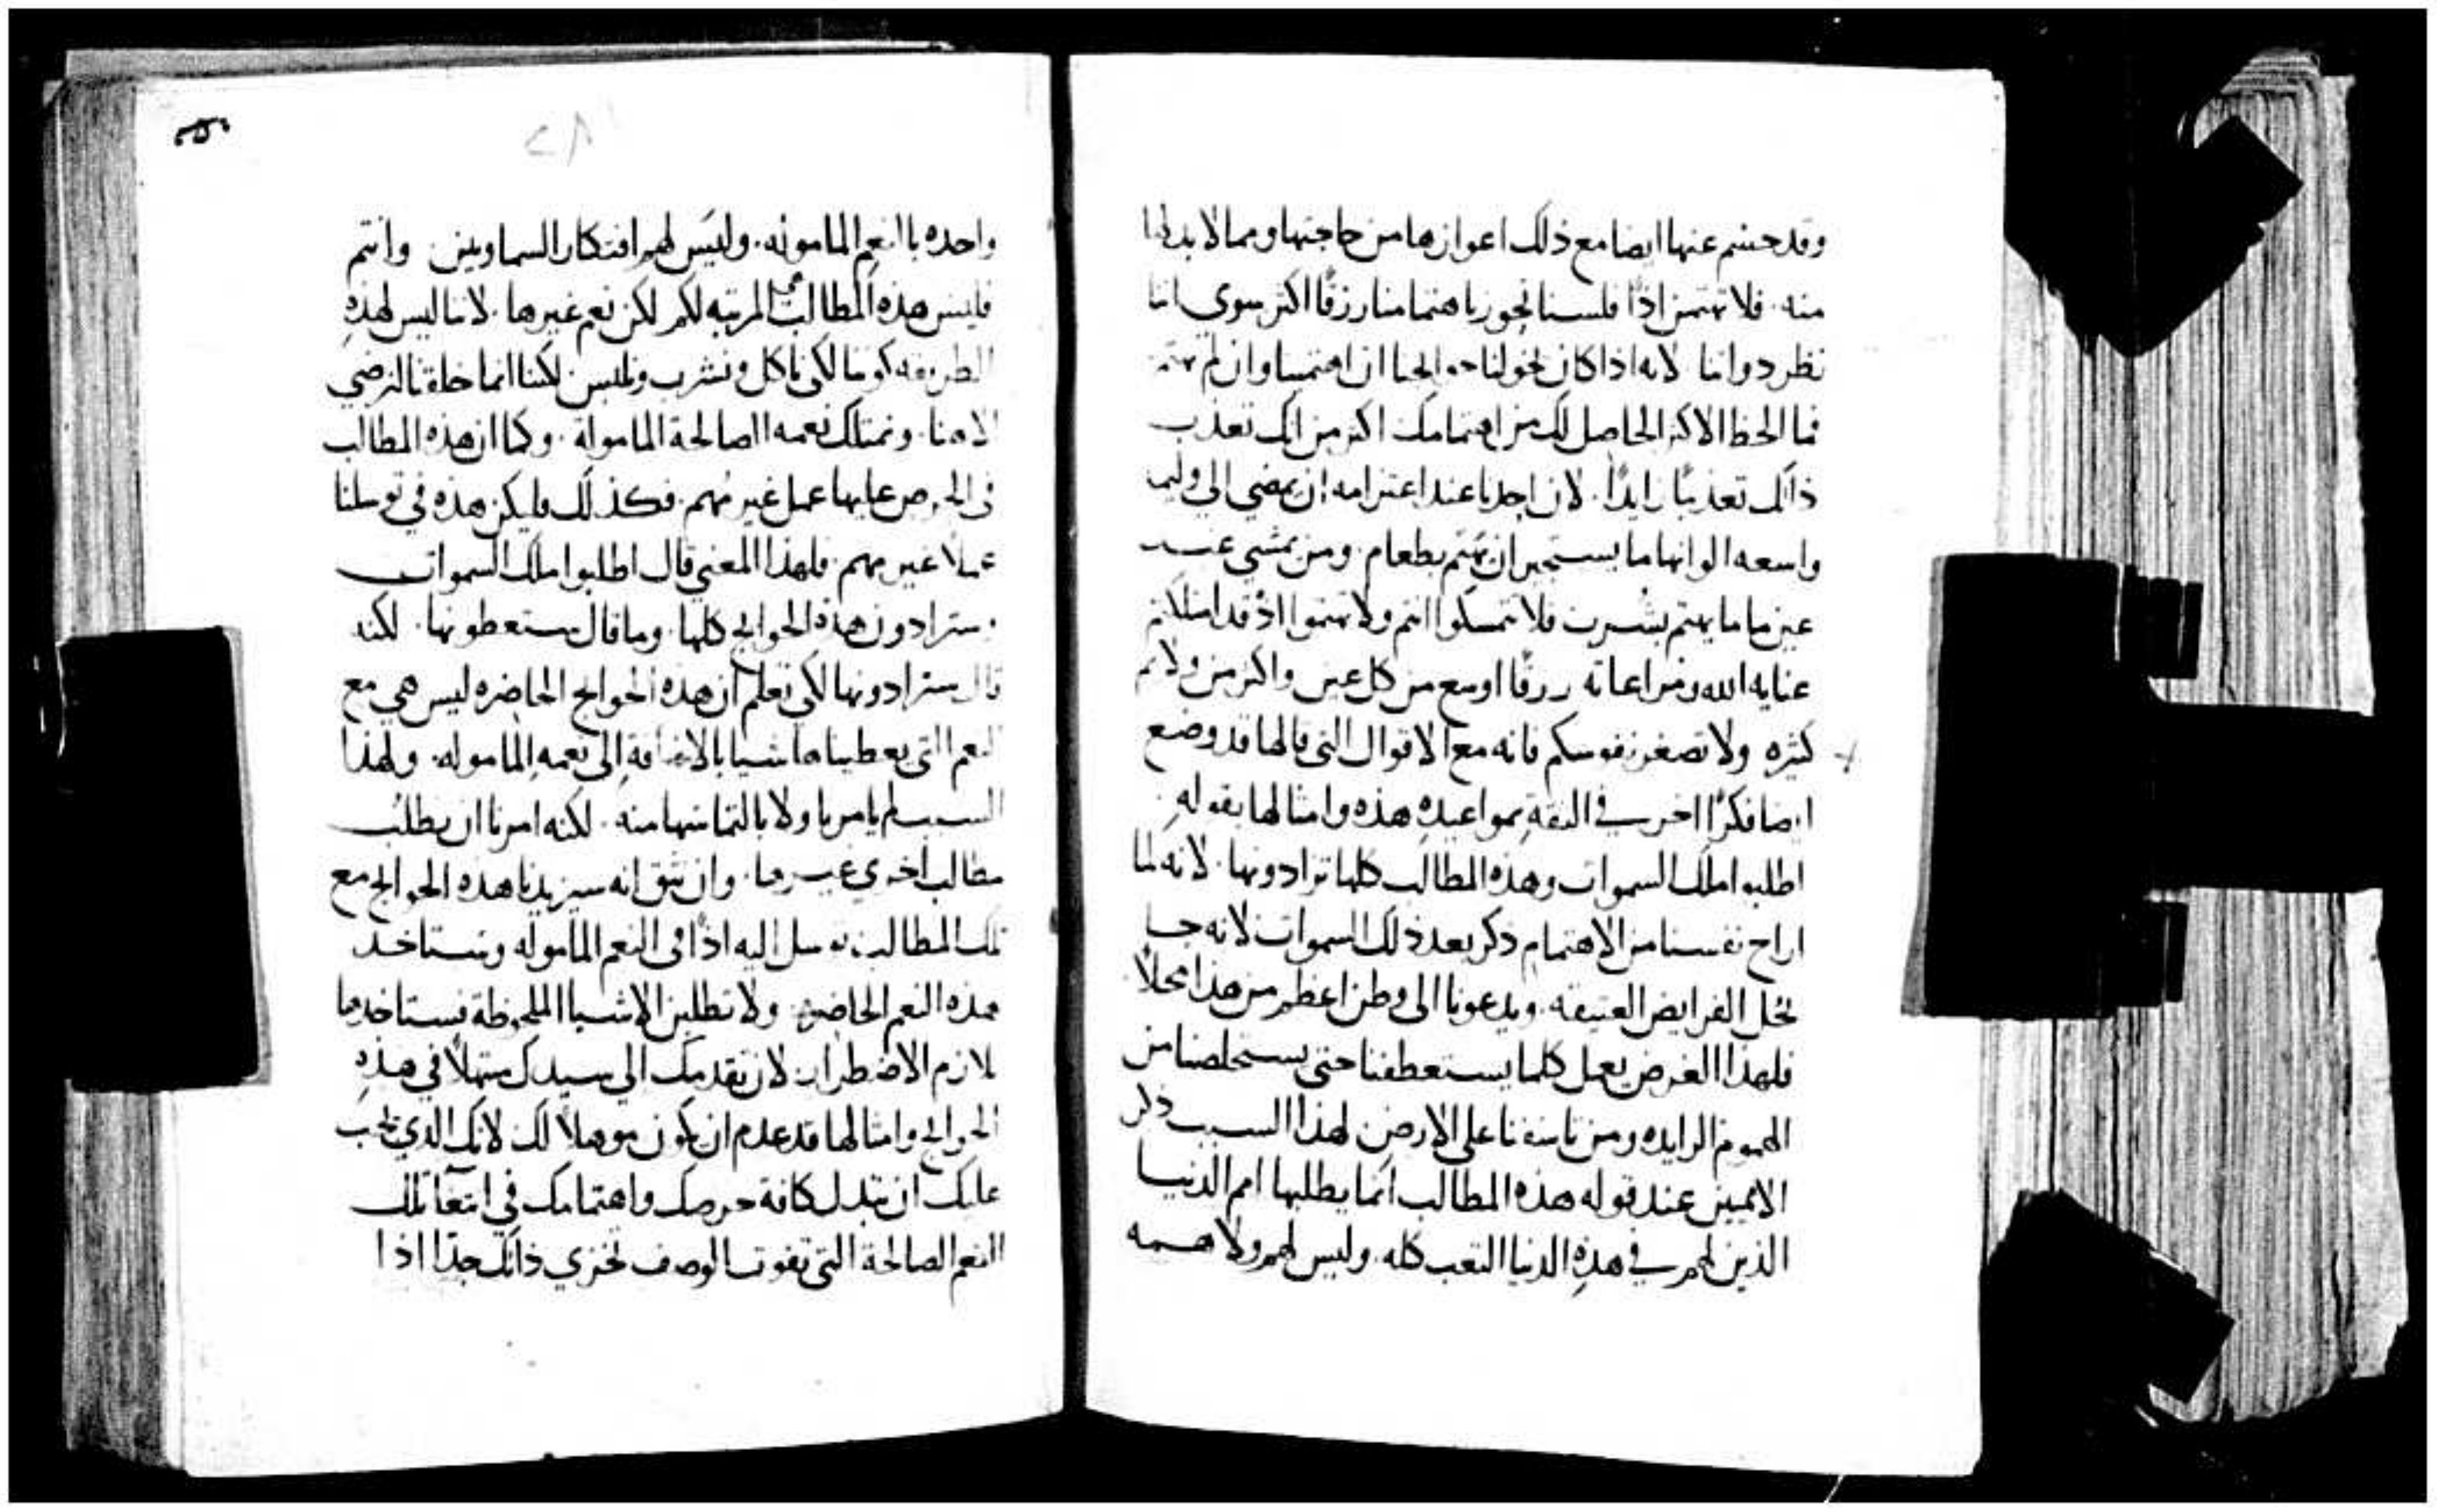 وقد حسم عنها ايضا مع ذلك اعوازها من حاجتها ومما لا بد لها
منه. فلا تهتمن اذًا فلسنا نحوز باهتمامنا رزقًا اكثر سوي اننا
نظرد واننا لانه اذا كان يخولنا حوايجنا ان اهتممنا وان لم نهتم
فما الحظ الاكثر الحاصل لك من اهتمامك اكثر من انك تعذب
ذاتك تعذيبًا زايدًا. لان احدنا عند اعتزامه ان يمضي الي وليمه
واسعه الوانها ما يستجيز ان يهتم بطعام. ومن يمشي عند
عين ما ما يهتم بشرب فلا تمسكوا انتم ولا تهتموا اذ قد امتلكتم
عنايه الله ومراعاته رزقًا اوسع من كل عين واكثر من ولايم
كثيره ولا تصغرن نفوسكم فانه مع الاقوال التي قالها قد وضع
ايضا فكرًا اخر في الثقةِ بمواعيدهِ هذه وامثالها بقولهِ
اطلبوا ملك السموات وهذه المطالب كلها تزادونها. لانه لما
اراح نفسنا من الاهتمام ذكر بعد ذلك السموات لانه جا
يحل الفرايض العتيقه. ويدعونا الى وطن اعظم من هذا محلاً.
فلهذا الغرض يعمل كلما يستعطفنا حتى يستخلصنا من
الهموم الزايده ومن تاسفنا على الارض لهذا السبب ذكر
الامميين عند قوله هذه المطالب انما يطلبها امم الدنيا
الذين لهم في هذهِ الدنيا التعب كله. وليس لهم ولا همه
واحده بالنعم المامولهَ. وليسَ لهم افتكار السماويين وانتم
فليس هذه المطالب هي المرتبه لكم لكن نعم غيرها. لاننا ليس لهذهِ
الطريقه كوننا لكي ناكل ونشرب ونلبس. لكننا انما خلقنا لنرضي
الاهنا. ونمتلك نعمه الصالحة المامولة. وكما ان هذه المطالب
فى الحرص عليها عمل غير مُهم. فكذلك فليكن هذه في توسلنا
عملاً غير مهم. فلهذا المعني قال اطلبوا ملك السموات
وستزادون هذه الحوايج كلها. وما قال ستعطونها. لكنه
قال ستزادونها لكي تعلم ان هذه الحوايج الحاضره ليس هي مع
النعم التي يعطيناها شيا بالاضافةِ الى نعمه المامولهِ. ولهذا
السبب لم يامرنا ولا بالتماسها منه. لكنه امرنا ان يطلب
مطالب اخري غيرها. وان نثق انه سيزيدنا هذه الحوايج مع
تلك المطالب توسل اليه اذًا فى النعم الماموله وستاخد
هذه النعم الحاضره ولا تطلبن الاشيا الملحوظة فستاخدها
بلازم الاضطرار. لان تقدمك الي سيدك مبتهلاً في هذهِ
الحوايج وامثالها قد عدم ان يكون موهلاً لك لانك الذي يجب
عليك ان تبدل كافة حرصك واهتمامك في ابتغا تلك
النعم الصالحة التي تفوت الوصف تخزي ذاتك جدًا اذا